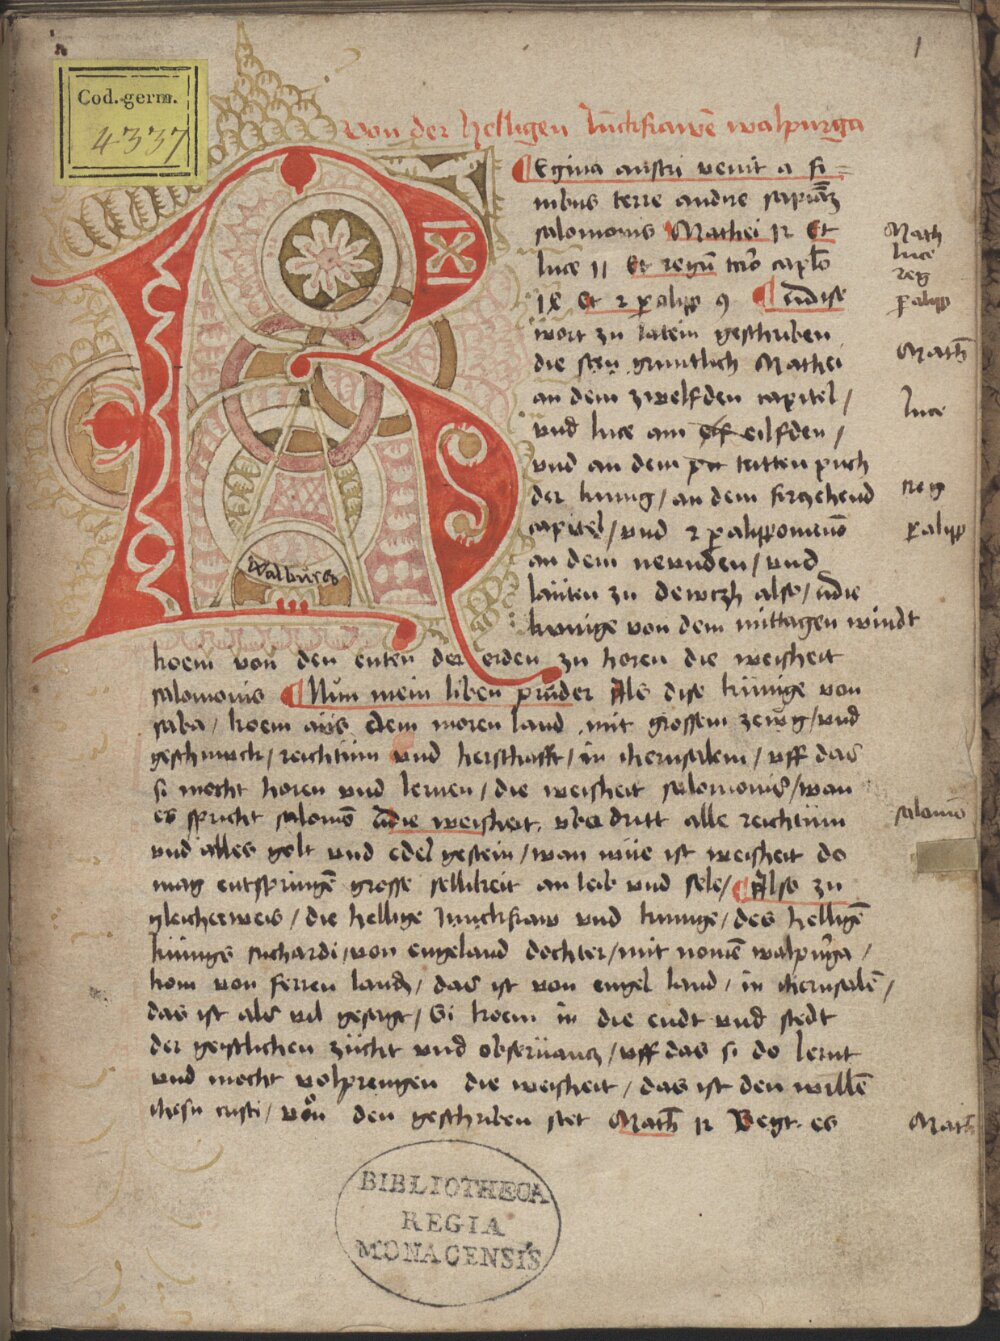 1
Cod. germ.
4337
Von der helligen Junckfrawē walpurga
Regina austri venit a fi=
nibus terre audire sapiāz
salomonis Mathei 12 Et
luce 11 Et regū
Et 2 paralipp 9 dise
wort zu latein geschriben
die sten gruntlich Mathei
an dem zwelfden capitel /
vnd luce am eilfden /
vnd an dem tritten puch
der kunig / an dem sechend
capitel / vnd 2 paralippomenō
an dem neunden / vnd
lauten zu dewczh also / die
kunige von dem mittagen windt
koem von den enten der erden zu horen die weisheit
salomonis Nun mein liben pruder Als dise künige von
saba / koem aus dem moren land mit grossem zewg / vnd
geschmuck / reichtum vnd herschafft / in iherusalem / vff das
si mocht horen vnd lernen / die weisheit salomonis / wan
es spricht salomō die weisheit, vber dritt alle reichtum
vnd alles golt vnd edel gestein / wan wue ist weisheit do
mag entspringē grosse sellikeit an leib vnd sele / Also zu
gleicherweis / die hellige Junckfraw vnd kunige / des helligē
künigs richardi / von engeland dochter / mit nomē walpurga /
kom von ferren landz / das ist von engel land / in iherusalē /
das ist als vil gesagt / Si koem in die endt vnd stedt
der geistlichen zücht vnd obserüancz / vff das si do lernt
vnd mocht volprengen die weisheit / das ist den willē
ihesu cristi / von den geschriben stet Math 12 Regt es
Walburg
Math
luce
reg
paralipp
Math
luce
reg
paralipp
salomō
Math
BIBLIOTHECA
REGIA
MONACENSIS